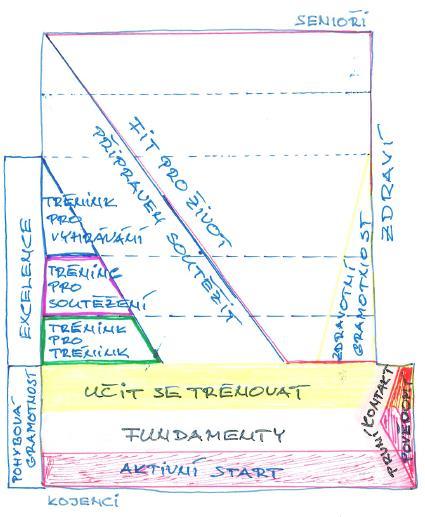 SENIOŘI
FIT PRO ŽIVOT
PŘIPRAVEN SOUTĚŽIT
ZDRAVÍ
ZDRAVOTNÍ
GRAMOTNOST
EXCELENCE
TRÉNINK
PRO
VYHRÁVÁNÍ
TRÉNINK
PRO
SOUTĚŽENÍ
TRÉNINK
PRO
TRÉNINK
POHYBOVÁ
GRAMOTNOST
UČIT SE TRÉNOVAT
FUNDAMENTY
AKTIVNÍ START
PRVNÍ KONTAKT
POVĚDOMÍ
KOJENCI